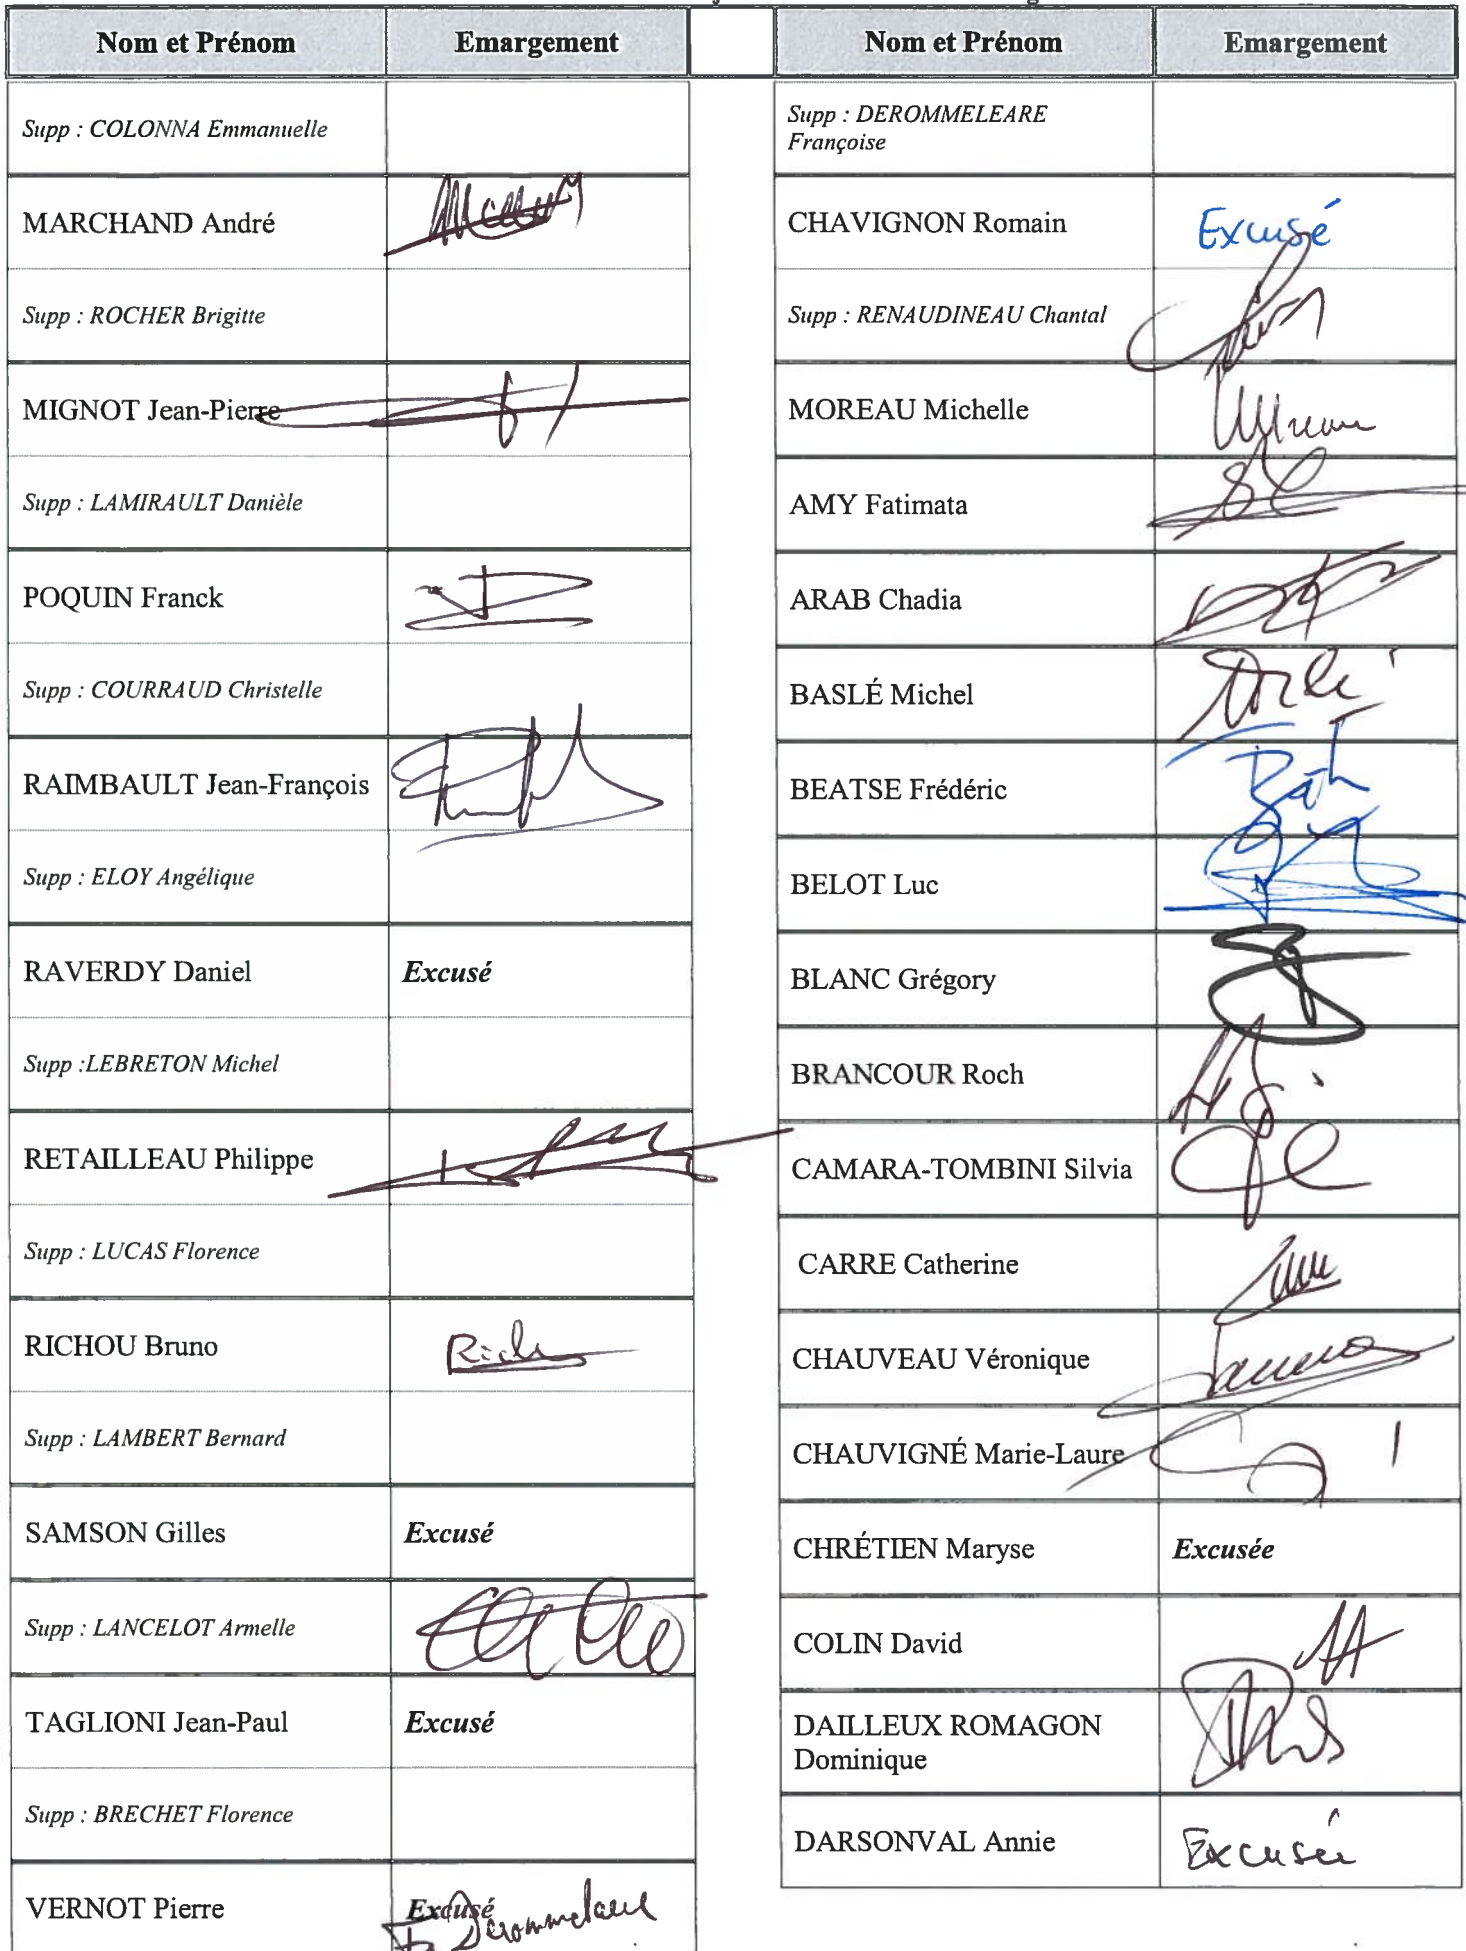 Nom et Prénom Emargement
Supp : COLONNA Emmanuelle
MARCHAND André
Supp : ROCHER Brigitte
MIGNOT Jean-Pierre
Supp : LAMIRAULT Danièle
POQUIN Franck
Supp : COURRAUD Christelle
RAIMBAULT Jean-François
Supp : ELOY Angélique
RAVERDY Daniel Excusé
Supp :LEBRETON Michel
RETAILLEAU Philippe
Supp : LUCAS Florence
RICHOU Bruno
Supp : LAMBERT Bernard
SAMSON Gilles Excusé
Supp : LANCELOT Armelle
TAGLIONI Jean-Paul Excusé
Supp : BRECHET Florence
VERNOT Pierre Excusé
Nom et Prénom Emargement
Supp : DEROMMELEARE
Françoise
CHAVIGNON Romain Excusé
Supp : RENAUDINEAU Chantal
MOREAU Michelle
AMY Fatimata
ARAB Chadia
BASLÉ Michel
BEATSE Frédéric
BELOT Luc
BLANC Grégory
BRANCOUR Roch
CAMARA-TOMBINI Silvia
CARRE Catherine
CHAUVEAU Véronique
CHAUVIGNÉ Marie-Laure
CHRÉTIEN Maryse Excusée
COLIN David
DAILLEUX ROMAGON
Dominique
DARSONVAL Annie Excusée